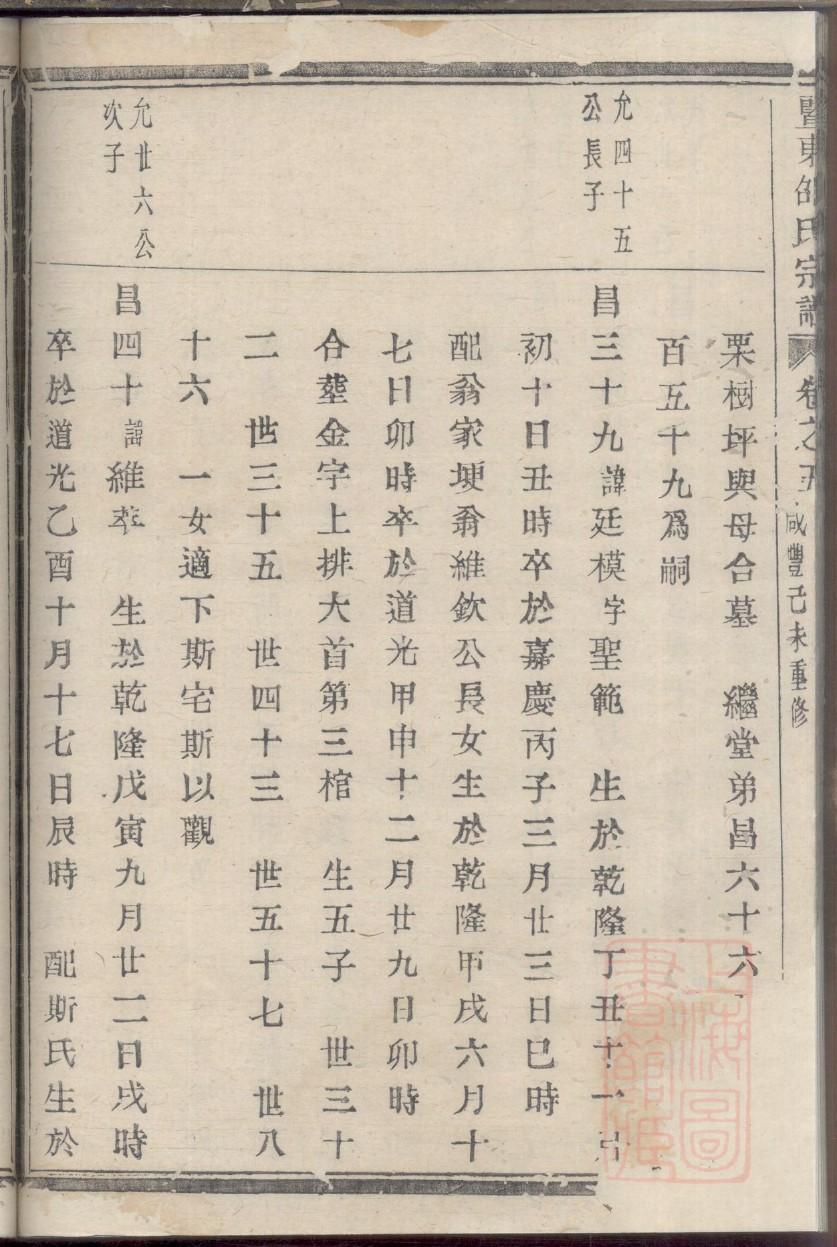 暨東邵氏宗譜 卷之五 咸豐己未重修
栗樹坪與母合墓 繼堂弟昌六十六
百五十九爲嗣
允四十五
公長子
昌三十九諱廷模字聖範 生於乾隆丁丑十一月
初十日丑時卒於嘉慶丙子三月廿三日巳時
配翁家埂翁維欽公長女生於乾隆甲戌六月十
七日卯時卒於道光甲申十二月廿九日卯時
合塟金字上排大首第三棺 生五子 世三十
二 世三十五 世四十三 世五十七 世八
十六 一女適下斯宅斯以觀
允廿六公
次子
昌四十諱維萃 生於乾隆戊寅九月廿二日戌時
卒於道光乙酉十月十七日辰時 配斯氏生於
上海圖書館藏